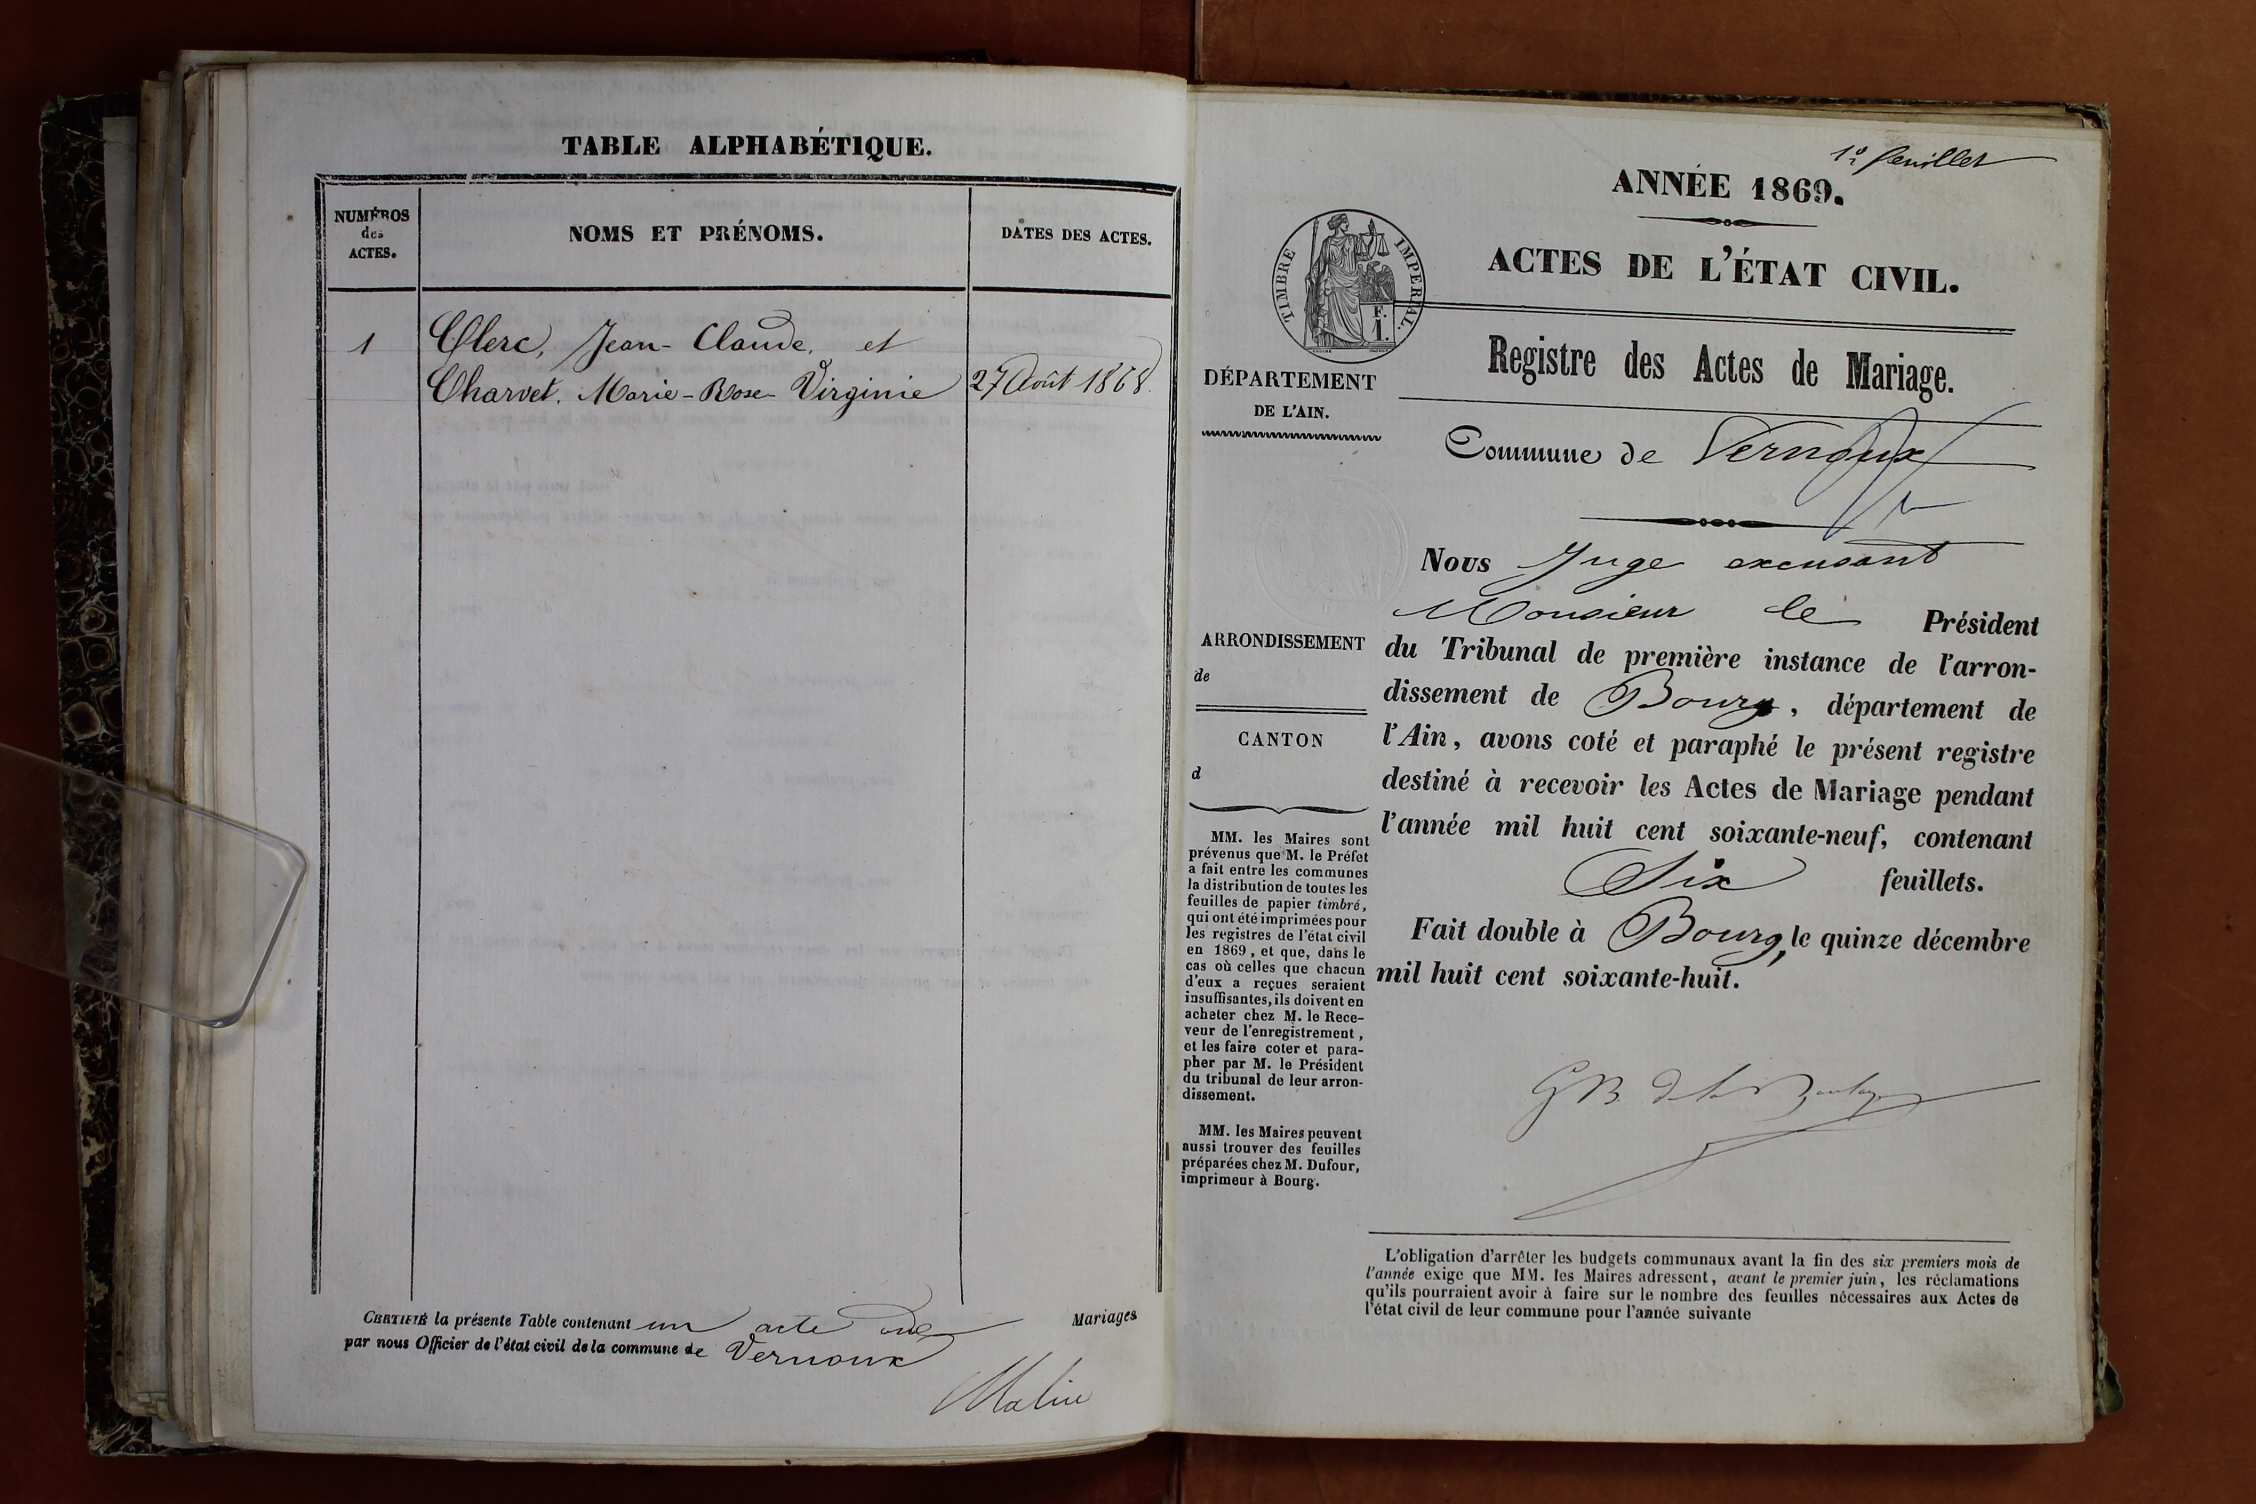 TABLE ALPHABÉTIQUE.
NUMÉROS
des
ACTES.
NOMS ET PRÉNOMS.
DATES DES ACTES.
1
Clerc, Jean-Claude, et
Charvet, Marie-Rose-Virginie
27 Août 1868.
CERTIFIÉ la présente Table contenant un acte de Mariages
par nous Officier de l'état civil de la commune de Vernoux
1er feuillet
ANNÉE 1869.
ACTES DE L'ÉTAT CIVIL.
TIMBRE IMPERIAL.
F.
1.
Registre des Actes de Mariage.
DÉPARTEMENT
DE L'AIN.
Commune de Vernoux
Nous Juge excusant
Monsieur le Président
du Tribunal de première instance de l'arron-
dissement de Bourg, département de
l'Ain, avons coté et paraphé le présent registre
destiné à recevoir les Actes de Mariage pendant
l'année mil huit cent soixante-neuf, contenant
Six feuillets.
Fait double à Bourg, le quinze décembre
mil huit cent soixante-huit.
ARRONDISSEMENT
de
CANTON
d
MM. les Maires sont
prévenus que M. le Préfet
a fait entre les communes
la distribution de toutes les
feuilles de papier timbré,
qui ont été imprimées pour
les registres de l'état civil
en 1869, et que, dans le
cas où celles que chacun
d'eux a reçues seraient
insuffisantes, ils doivent en
acheter chez M. le Rece-
veur de l'enregistrement,
et les faire coter et para-
pher par M. le Président
du tribunal de leur arron-
dissement.
MM. les Maires peuvent
aussi trouver des feuilles
préparées chez M. Dufour,
imprimeur à Bourg.
L'obligation d'arrêter les budgets communaux avant la fin des six premiers mois de
l'année exige que MM. les Maires adressent, avant le premier juin, les réclamations
qu'ils pourraient avoir à faire sur le nombre des feuilles nécessaires aux Actes de
l'état civil de leur commune pour l'année suivante